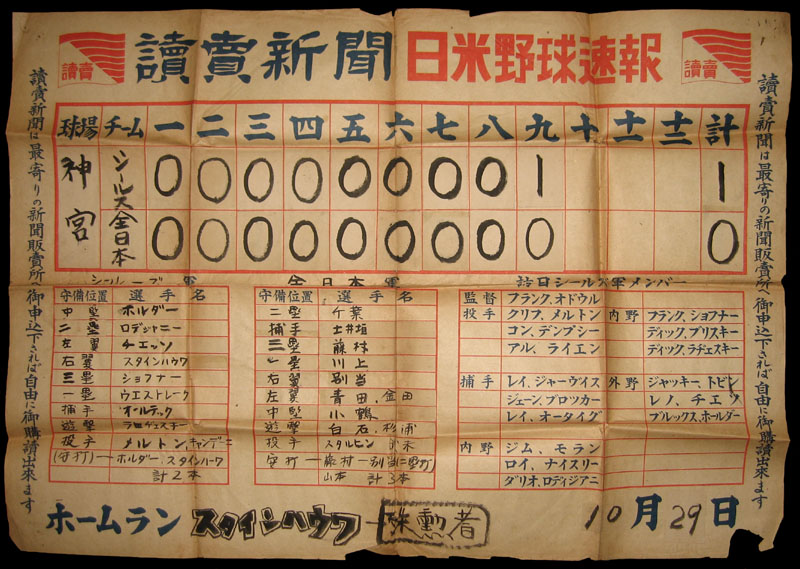 讀賣新聞 日米野球速報
讀賣
讀賣
讀賣新聞は最寄りの新聞販賣所へ御申込下されば自由に御購讀出來ます
讀賣新聞は最寄りの新聞販賣所へ御申込下されば自由に御購讀出來ます
球場 チーム 一 二 三 四 五 六 七 八 九 十 十一 十二 計
神宮 シールス 0 0 0 0 0 0 0 0 1 1
全日本 0 0 0 0 0 0 0 0 0 0
シールズ軍
守備位置 選手名
中堅 ホルダー
二塁 ロデジャニー
左翼 チエッソ
右翼 スタインハウワ
三塁 ショフナー
一塁 ウエストレーク
捕手 オールテック
遊撃 ラヂェスキー
投手 メルトン、キャンデーニ
(安打)ーホルダー スタインハーワ
計2本
全日本軍
守備位置 選手名
二塁 千葉
捕手 土井垣
三塁 藤村
一 川上
右翼 別当
左翼 青田、金田
中堅 小鶴
遊撃 白石、杉浦
投手 スタルヒン
安打ー藤村ー別当(二塁打)
山本 計3本
訪日シールズ軍メンバー
監督 フランク、オドウル
投手 クリフ、メルトン
コン、デンプシー
アル、ライエン
捕手 レイ、ジャーヴイス
ジェーン、ブロッカー
レイ、オータイグ
内野 ジム、モラン
ロイ、ナイスリー
ダリオ、ロディジアニ
内野 フランク、ショフナー
ディック、ブリスキー
ディック、ラヂェスキー
外野 ジャッキー、トビン
レノ、チエソ
ブルックス、ホールダー
ホームラン スタインハウワ 殊勲者 10月29日